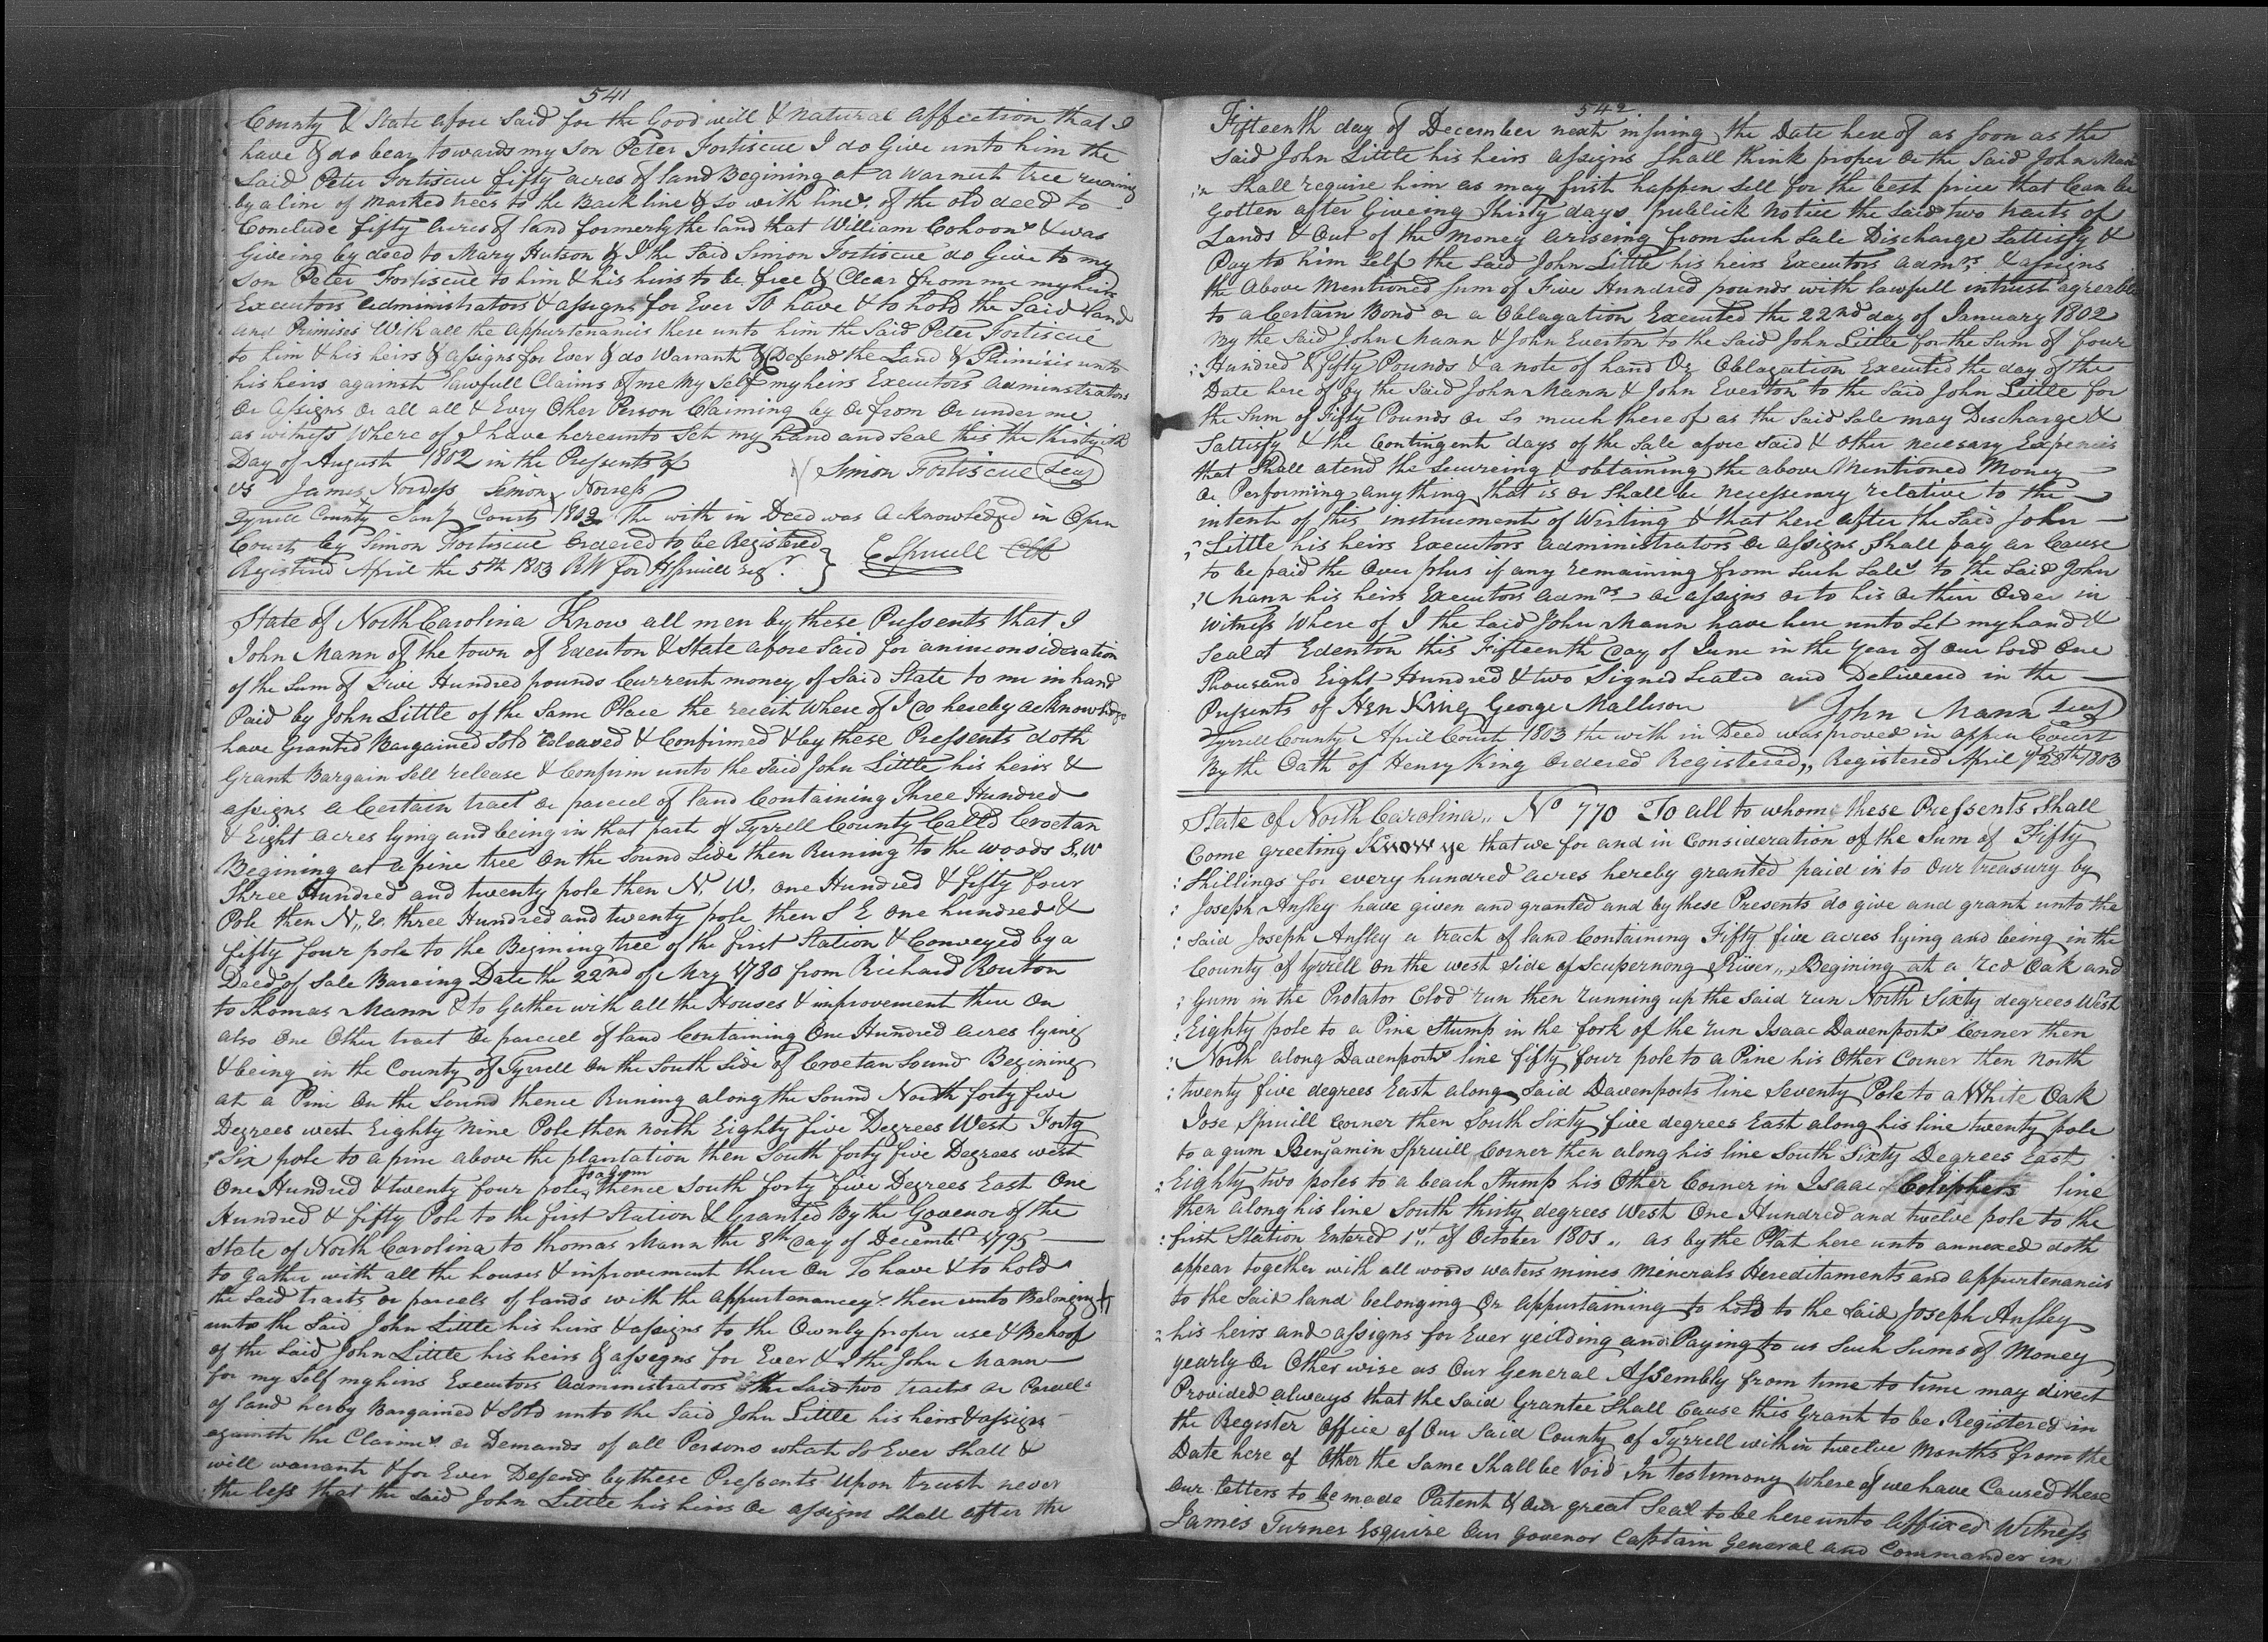 541
County & State afore Said for the Good will & natural affection that I
have & do bear towards my Son Peter Fortiscue I do Give unto him the
Said Peter Fortiscue fifty acres of land Begining at a warnut tree runing
by a line of marked trees to the Back line & so with line, of the old deed to
Conclude fifty acres of land formerly the land that William Cohoons & was
Giveing by deed to Mary Hutson & I the Said Simon Fortiscue do Give to my
Son Peter Fortiscue to him & his heirs to be free & Clear from me my heirs
Executors administrators & assigns for Ever To have & to hold the Said Land
and Primises With all the appurtenancis there unto him the Said Peter Fortiscue
to him & his heirs & assigns for Ever & do Warrant & Defend the Land & Primisis unto
his heirs against lawfull Claims of me my Self my heirs Executors adminstrators
or assigns or all all & Evry Other Person Claiming by or from or under me
as witness Where of I have hereunto Set my hand and Seal this the thirtyith
Day of August 1802 in the Pressents of
Simon Fortiscue Seal
us James Noress Simon Noress
Tyrrell County Jany Court 1803 The with in Deed was acknowledged in Open
Court by Simon Fortiscue Ordered to be Registered
Registered April the 5th 1803 BW for HSpruill reg.r } ESpruill Clk
State of North Carolina Know all men by these Pressents that I
John Mann of the town of Edenton & State afore Said for an in consideration
of the Sum of Five Hundred pounds Current money of Said State to me in hand
Paid by John Little of the Same Place the receit where of I do hereby acknowledge
have Granted Bargained Sold released & Confirmed & by these Pressents doth
Grant Bargain Sell release & Confirm unto the Said John Little his heirs &
assigns a Certain tract or parcel of land Containing Three Hundred
& Eight acres lying and being in that part of Tyrrell County Calld Croetan
Begining at a pine tree on the Sound Side then Runing to the woods S,W
Three Hundred and twenty pole then N, W, one Hundred & fifty four
Pole then N,, E, three Hundred and twenty pole then S E one hundred &
fifty four pole to the Begining tree of the first Station & Conveyed by a
Deed of Sale Bareing Date the 22nd of May 1780 from Richard Routon
to Thomas Mann & to Gather with all the Houses & improvement there on
also One Other tract or parcel of land Containing One Hundred acres lying
& being in the County of Tyrrell on the South Side of Croetan Sound Begining
at a Pine on the Sound thence Runing along the Sound North forty five
Degrees west Eighty Nine Pole then north Eighty five Degrees West Forty
Six pole to a pine above the plantation then South forty five Degrees west
to a gum
One Hundred & twenty four pole, thence South forty five Degrees East One
Hundred & fifty Pole to the first Station & Granted By the Govenor of the
State of North Carolina to thomas Mann the 8th day of December 1795
to gather with all the houses & improvement there on To have & to hold
the Said tracts or parcels of lands with the appurtanancey there unto Belonging
unto the Said John Little his heirs & assigns to the Ownly proper use & Behoof
of the Said John Little his heirs & assigns for Ever & I the John Mann
for my Self my heirs Executors administrators the Said two tracts or Parcels
of land herby Bargained & Sold unto the Said John Little his heirs & assigns
against the Claimes or Demands of all Persons what So Ever Shall &
will warrant & for Ever Defend by these Pressents Upon trust never
the less that the Said John Little his heirs or assigns Shall after the
542
Fifteenth day of December next insuing the Date here of as soon as the
Said John Little his heirs assigns Shall think proper or the Said John Man
n Shall require him as may first happen Sell for the best price that Can be
gotten after Giveing Thirty days publick Notice the Said two tracts of
Lands & Out of the Money ariseing from Such Sale Discharge Sattisfy &
Pay to him Self the Said John Little his heirs Executors admrs & assigns
the above Mentioned sum of Five Hundred pounds with lawfull intrust agreable
to a Certain Bond or a Oblagation Executed the 22nd day of January 1802
by the Said John Mann & John Everton to the Said John Little for the Sum of four
Hundred & fifty Pounds & a note of hand Or Oblagation Executed the day of the
Date here of by the Said John Mann & John Everton to the Said John Little for
the Sum of Fifty Pounds or So much there of as the Said Sale may Discharge &
Sattisfy & the Contingent days of the Sale afore Said & other necesary Expencis
that Shall atend the Secureing & obtaining the above Mentioned Money
or Performing any thing that is or Shall be necessary relative to the
intent of this instrument of Writing & that here after the Said John
Little his heirs Executors administrators or assigns Shall pay or Cause
to be paid the Over plus if any remaining from Such Sales to the Said John
Mann his heirs Executors admrs or assigns or to his or their Order in
witness Where of I the Said John Mann have here unto Set my hand &
Seal at Edenton this Fifteenth day of June in the Year of our Lord One
Thousand Eight Hundred & two Signed Sealed and Delivered in the
Pressents of Hen King George Mallison John Mann Seal
Tyrrell County April Court 1803 the with in Deed was proved in oppen Court
By the Oath of Henry King Ordered Registered,, Registered April ye 28th 1803
State of North Carolina,, No 770 To all to whom these Pressents Shall
Come greeting Know ye that we for and in Consideration of the Sum of Fifty
Shillings for every hundred acres hereby granted paid in to Our treasury by
Joseph Ansley have given and granted and by these Presents do give and grant unto the
Said Joseph Ansley a tract of land Containing Fifty five acres lying and being in the
County of tyrrell on the west Side of Scupernong River,, Begining at a red Oak and
Gum in the Protator Clod run then running up the Said run North Sixty degrees West
Eighty pole to a Pine Stump in the fork of the run Isaac Davenports Corner then
North along Davenports line fifty four pole to a Pine his Other Corner then North
twenty five degrees East along Said Davenports line Seventy Pole to a White Oak
Jose Spruill Corner then South Sixty five degrees East along his line twenty pole
to a gum Benjamin Spruill Corner then along his line South Sixty Degrees East
Eighty two poles to a beach Stump his Other Corner in Isaac line
then along his line South thirty degrees West One Hundred and twelve pole to the
first Station Entered 1st of October 1801,, as by the Plat here unto annexed doth
appear together with all woods waters mines Minerals Hereditaments and appurtenancis
to the Said land belonging Or appurtaining to hold to the Said Joseph Ansley
his heirs and assigns for Ever yeilding and Paying to us Such Sums of Money
yearly Or Other wise as Our General Assembly from time to time may direct
Provided always that the Said Grantee Shall Cause this Grant to be Registered in
the Register Office of Our Said County of Tyrrell within twelve Months from the
Date here of Other the Same Shall be Void In testimony Where of we have Caused these
our letters to be made Patent & our great Seal to be here unto affixed Witness
James Turner Esquire Our Govenor Captain General and Commander in